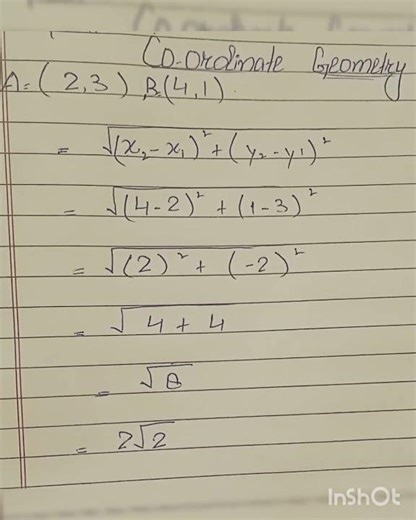 Co-ordinate Geometry
A = (2,3) B(4,1)
= √(x₂-x₁)² + (y₂-y1)²
= √(4-2)² + (1-3)²
= √(2)² + (-2)²
= √4 + 4
= √8
= 2√2
InShOt